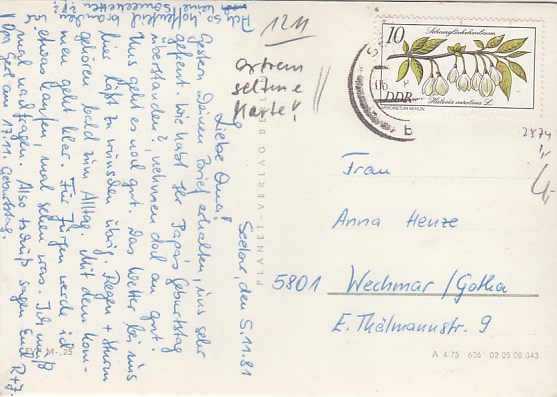 Seelow, den 5.11.81
Liebe Oma!
Gestern Deinen Brief erhalten, uns sehr
gefreut. Du hast Ihr Papas Geburtstag
überstanden?, nehmen doch an gut.
Uns geht es noch gut. Das Wetter bei uns
hier läßt zu wünschen übrig. Regen + Sturm
gehören bald zum Alltag. Mit dem
men geht klar. Für Jürgen werde ich
etwas kaufen, mal sehen was. Ich muß
mal nachfragen. Also tschüß sagen Euch R+J.
Vom 17.11. Geburtstag.
Ach so
1211
extrem
seltene
Karte!
PLANET-VERLAG
EVP M -,25
10
Schneeglöckchenbaum
DDR
Halesia carolina L.
ARBORETUM BERLIN
b
2874
Frau
Anna Henze
5801 Wechmar/Gotha
E. Thälmannstr. 9
A 4/75 606 02 05 08 043